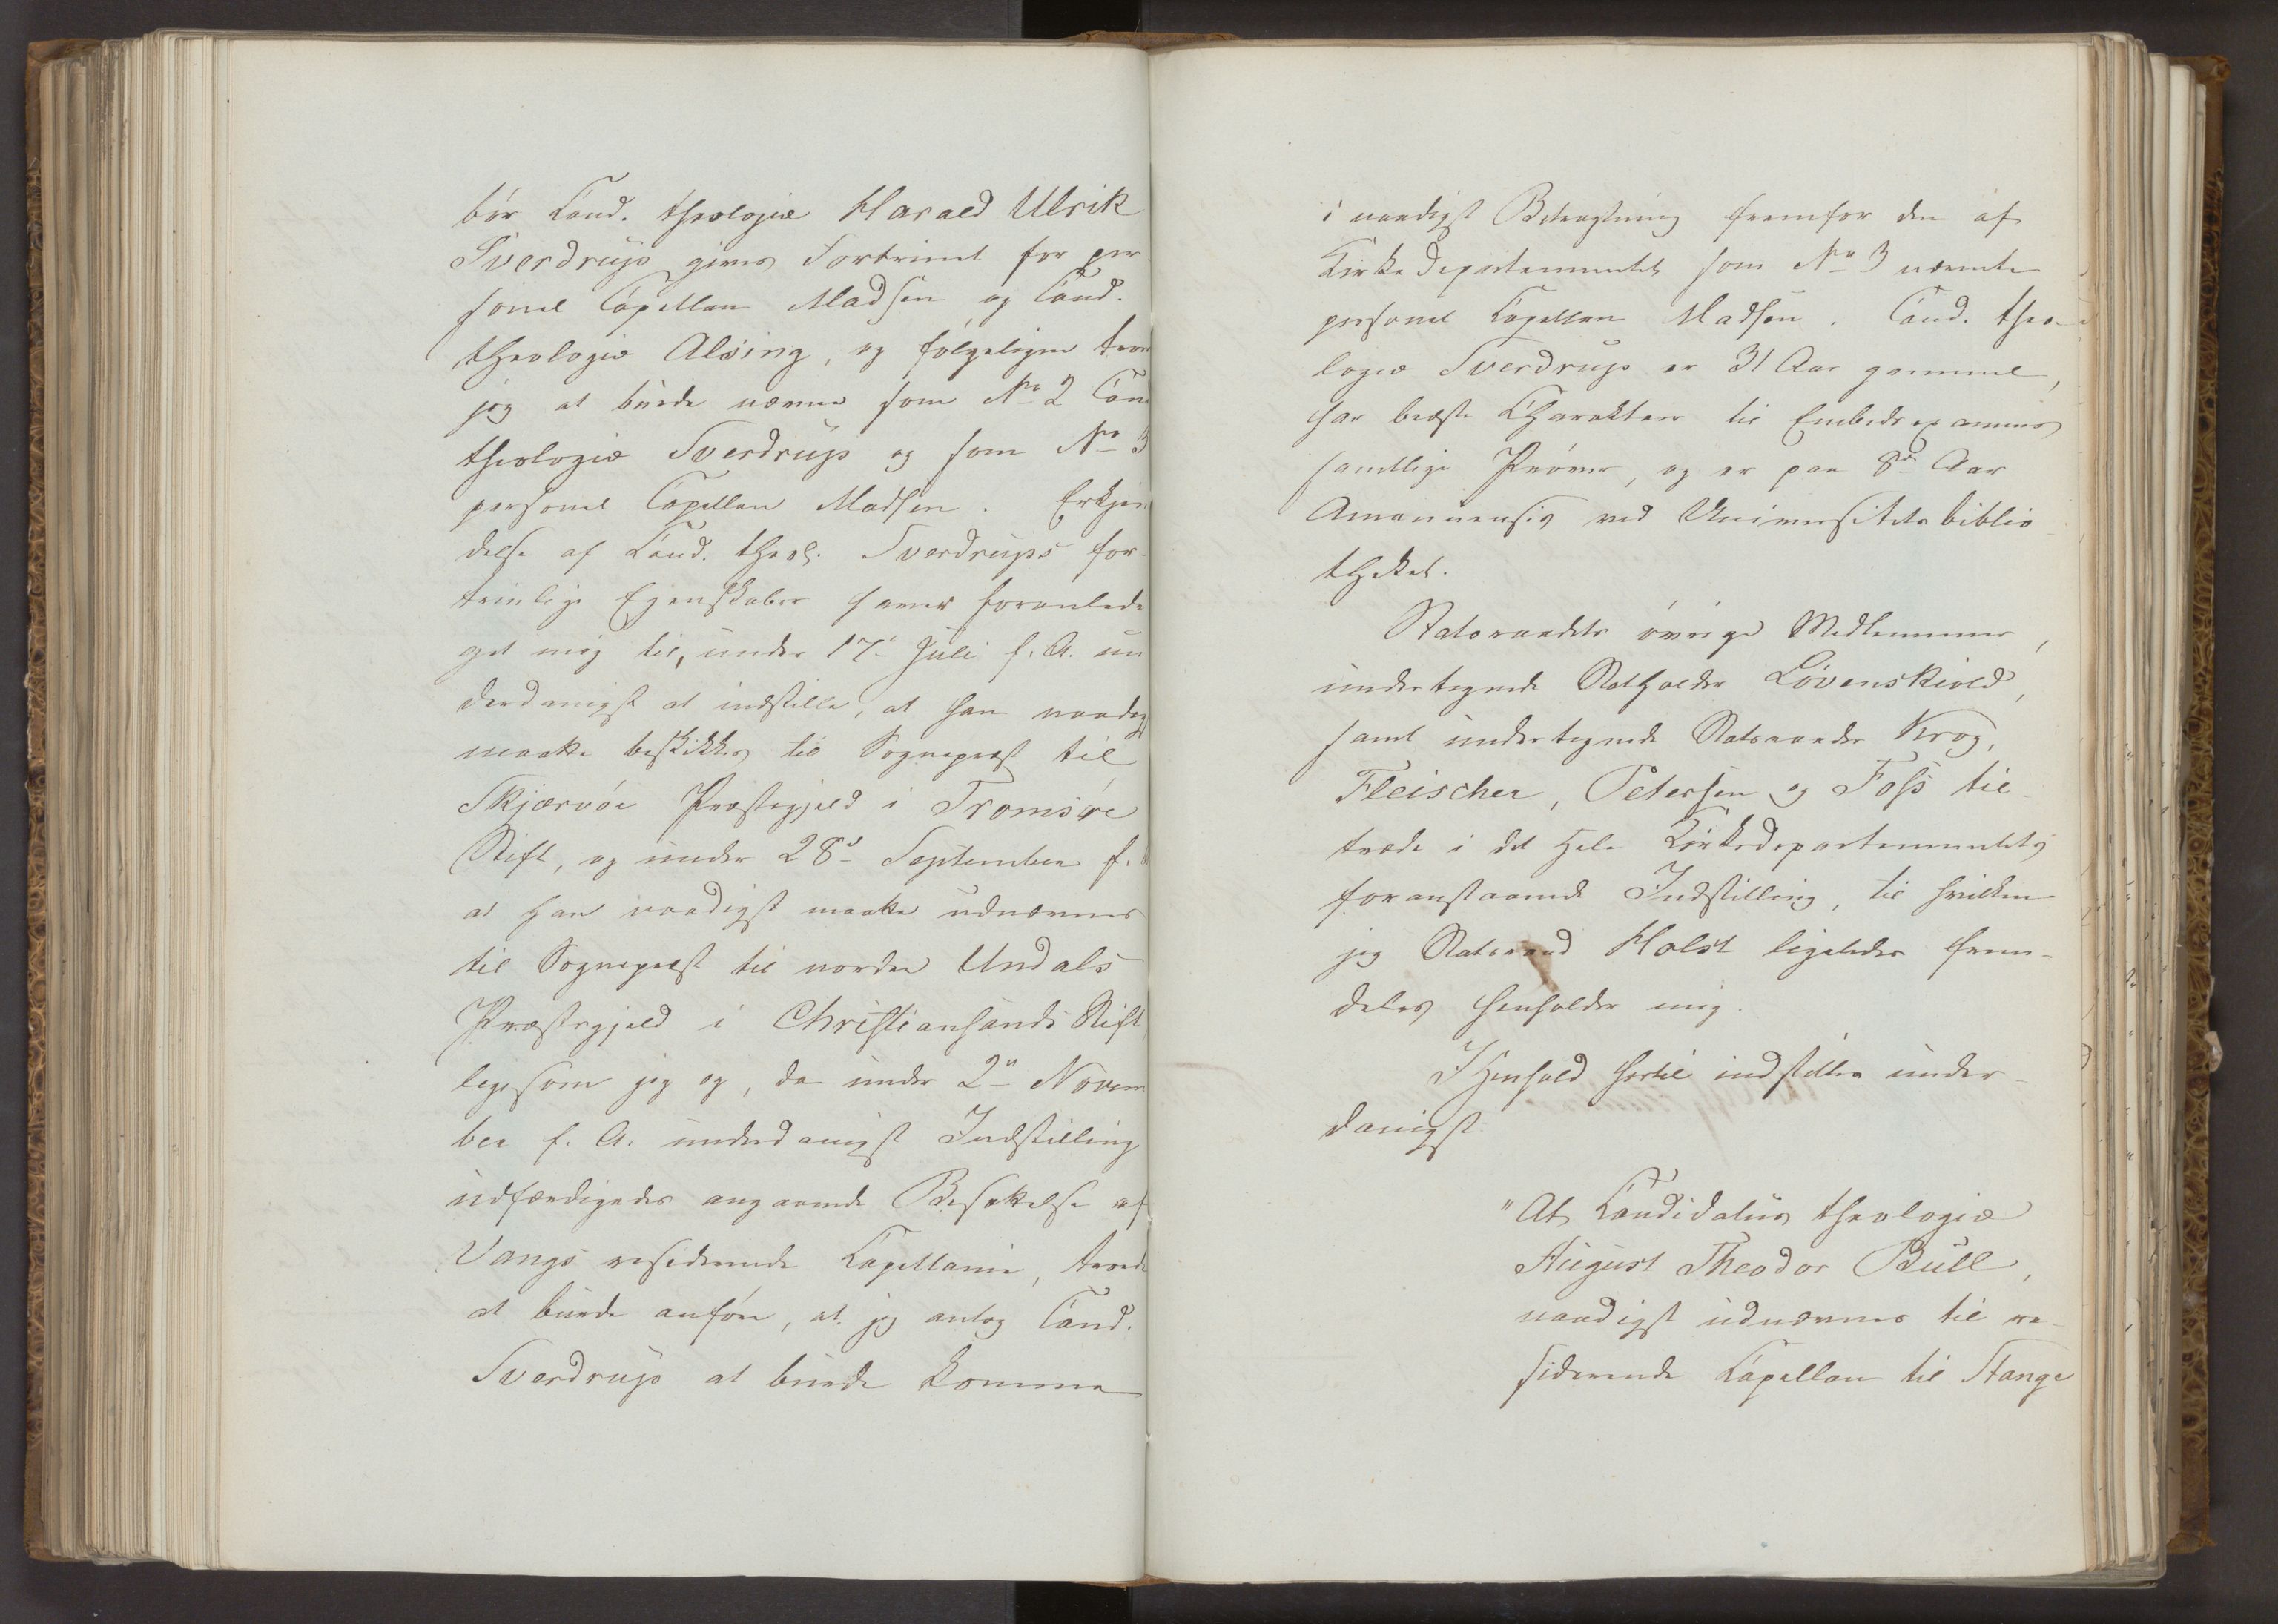 bør Cand. theologiæ Harald Ulrik
Sverdrup gives Fortrinet for per
sonel Capellan Madsen og Cand.
theologiæ Alsing, og følgeligen troer
jeg at burde nævne som No 2 Cand
theologiæ Sverdrup og som No 3
personel Capellan Madsen. Erkjen
delse af Cand. theol. Sverdrups for-
trinlige Egenskaber haver foranledi
get mig til, under 17de Juli f. A. un
derdanigst at indstille, at han naadigst
maatte beskikkes til Sognepræst til
Skjærvøe Præstegjeld i Tromsøe
Stift, og under 28de September f. A
at han naadigst maatte udnævnes
til Sognepræst til nordre Undals
Præstegjeld i Christiansands Stift
ligesom jeg og, da under 2den Novem
ber f. A. underdanigst Indstilling
udfærdigedes angaaende Besættelse af
Vangs residerende Capellanie, troede
at burde anføre, at jeg antog Cand.
Sverdrup at burde komme
i naadigst Betragtning fremfor den af
Kirkedepartementet som No 3 nævnte
personel Capellan Madsen. Cand. theo-
logiæ Sverdrup er 31 Aar gammel,
har bedste Charakteer til Embedsexamens
samtlige Prøver, og er paa 8de Aar
Amanuensis ved Universitetsbiblio-
theket.
Statsraadets øvrige Medlemmer,
undertegnede Statholder Løvenskiold,
samt undertegnede Statsraader Krog,
Fleischer, Petersen og Foss til-
træde i det Hele Kirkedepartementets
foranstaaende Indstilling, til hvilken
jeg Statsraad Holst ligeledes frem-
deles henholder mig.
I Henhold hertil indstilles under-
danigst:
"At Candidatus theologiæ
August Theodor Bull,
naadigst udnævnes til re-
siderende Capellan til Stange